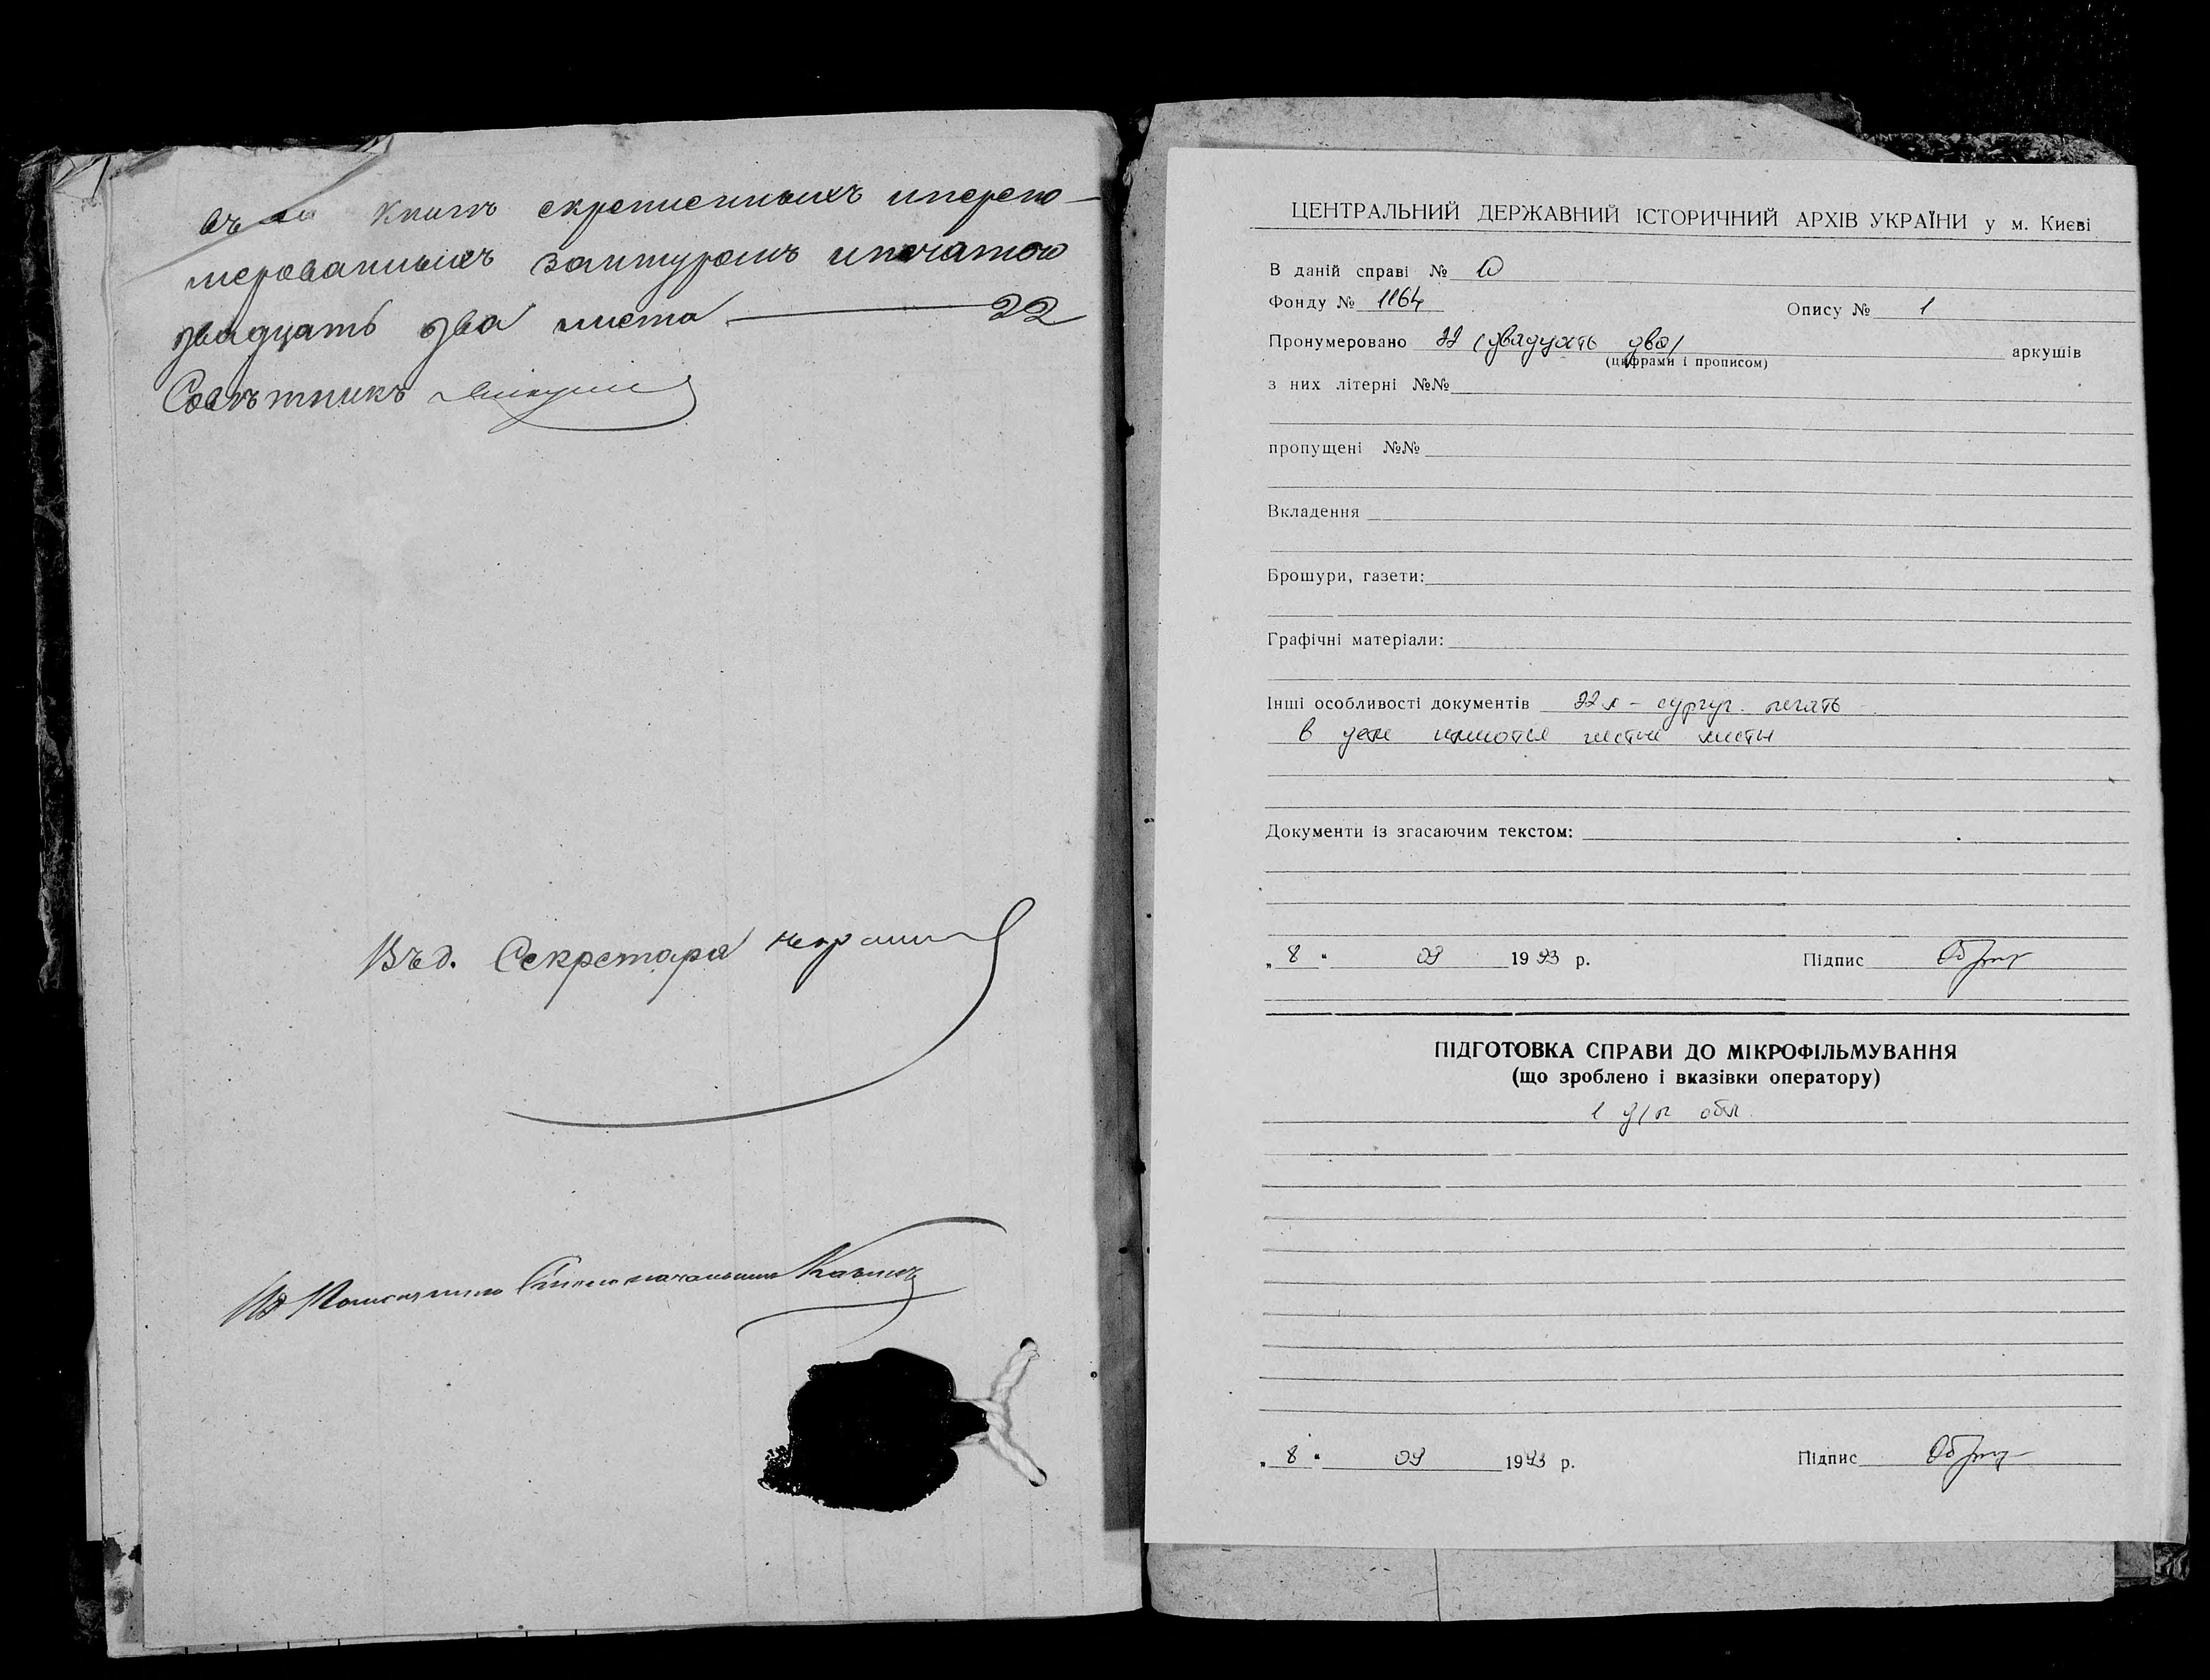 книгѣ скрепленныхъ иперено-
мерованныхъ зашнуромъ ипечатою
двадцать два листа — 22
Совѣтникъ
Въ д. Секретаря
Столоначальника
ЦЕНТРАЛЬНИЙ ДЕРЖАВНИЙ ІСТОРИЧНИЙ АРХІВ УКРАЇНИ у м. Києві
В даній справі №
Фонду № 1164 Опису № 1
Пронумеровано 22 (двадцать два) аркушів
(цифрами і прописом)
з них літерні №№
пропущені №№
Вкладення
Брошури, газети:
Графічні матеріали:
Інші особливості документів 22 л - сургуч. печать
в деле имеются чистые листы
Документи із згасаючим текстом:
„ 8 “ 09 1993 р. Підпис
ПІДГОТОВКА СПРАВИ ДО МІКРОФІЛЬМУВАННЯ
(що зроблено і вказівки оператору)
„ 8 “ 09 1993 р. Підпис